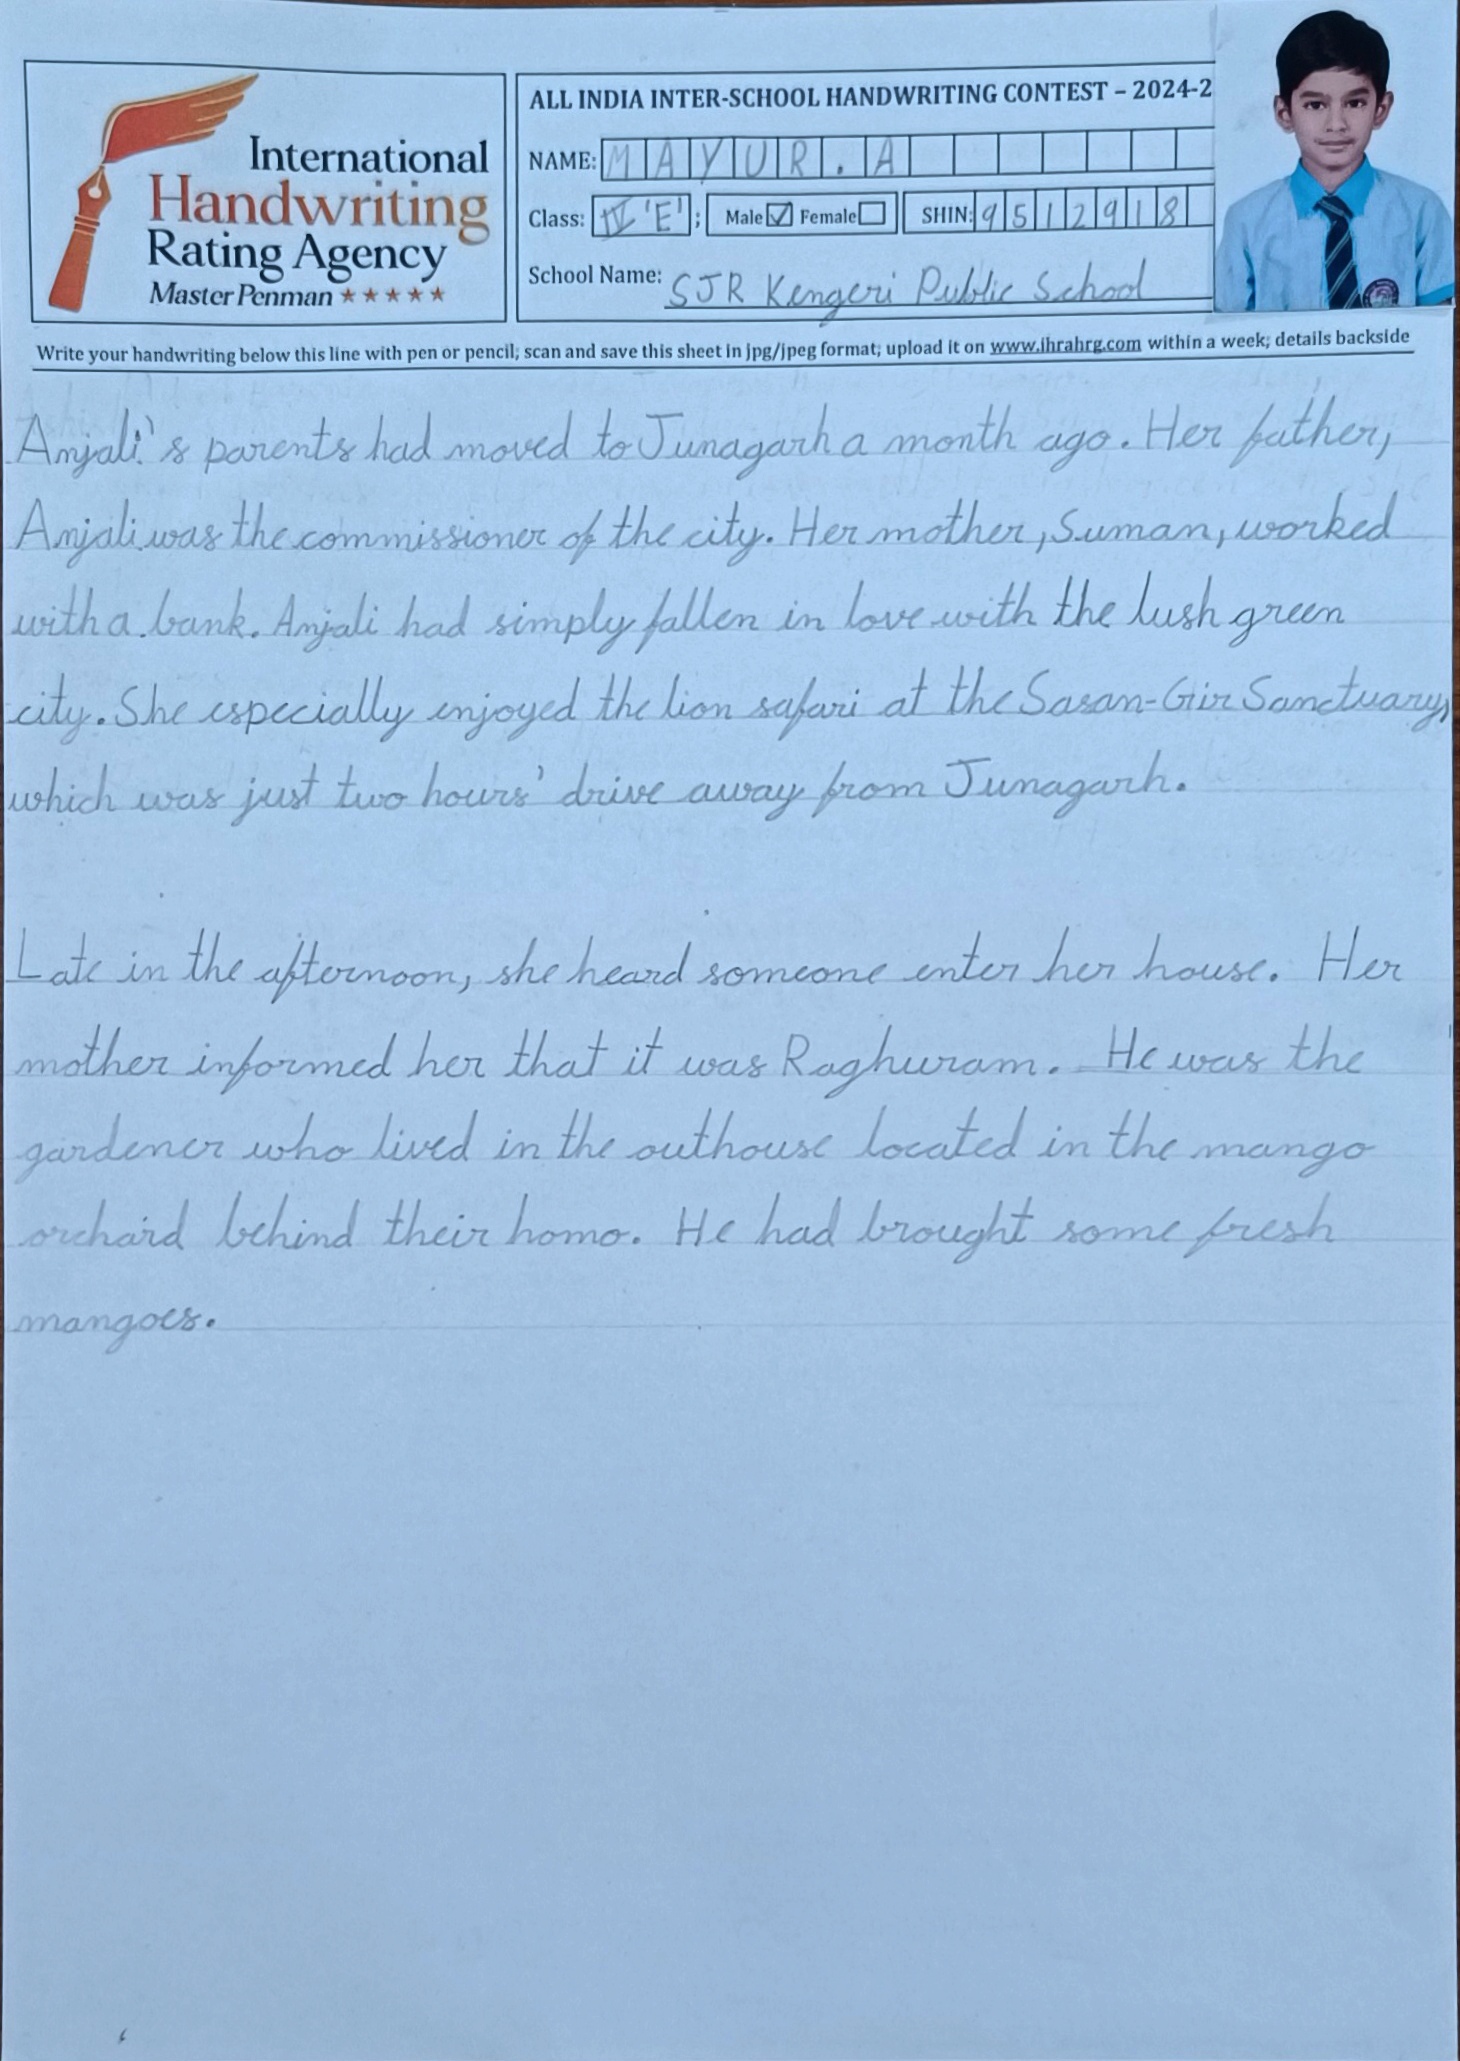 International
Handwriting
Rating Agency
Master Penman ★★★★★
ALL INDIA INTER-SCHOOL HANDWRITING CONTEST – 2024-2
NAME: MAYUR.A
Class: IV 'E'; Male ☑ Female ☐ SHIN: 9512918
School Name: SJR Kengeri Public School
Write your handwriting below this line with pen or pencil; scan and save this sheet in jpg/jpeg format; upload it on www.ihrahrg.com within a week; details backside
Anjali's parents had moved to Junagarh a month ago. Her father,
Anjali was the commissioner of the city. Her mother, Suman, worked
with a bank. Anjali had simply fallen in love with the lush green
city. She especially enjoyed the lion safari at the Sasan-Gir Sanctuary,
which was just two hours' drive away from Junagarh.
Late in the afternoon, she heard someone enter her house. Her
mother informed her that it was Raghuram. He was the
gardener who lived in the outhouse located in the mango
orchard behind their homo. He had brought some fresh
mangoes.